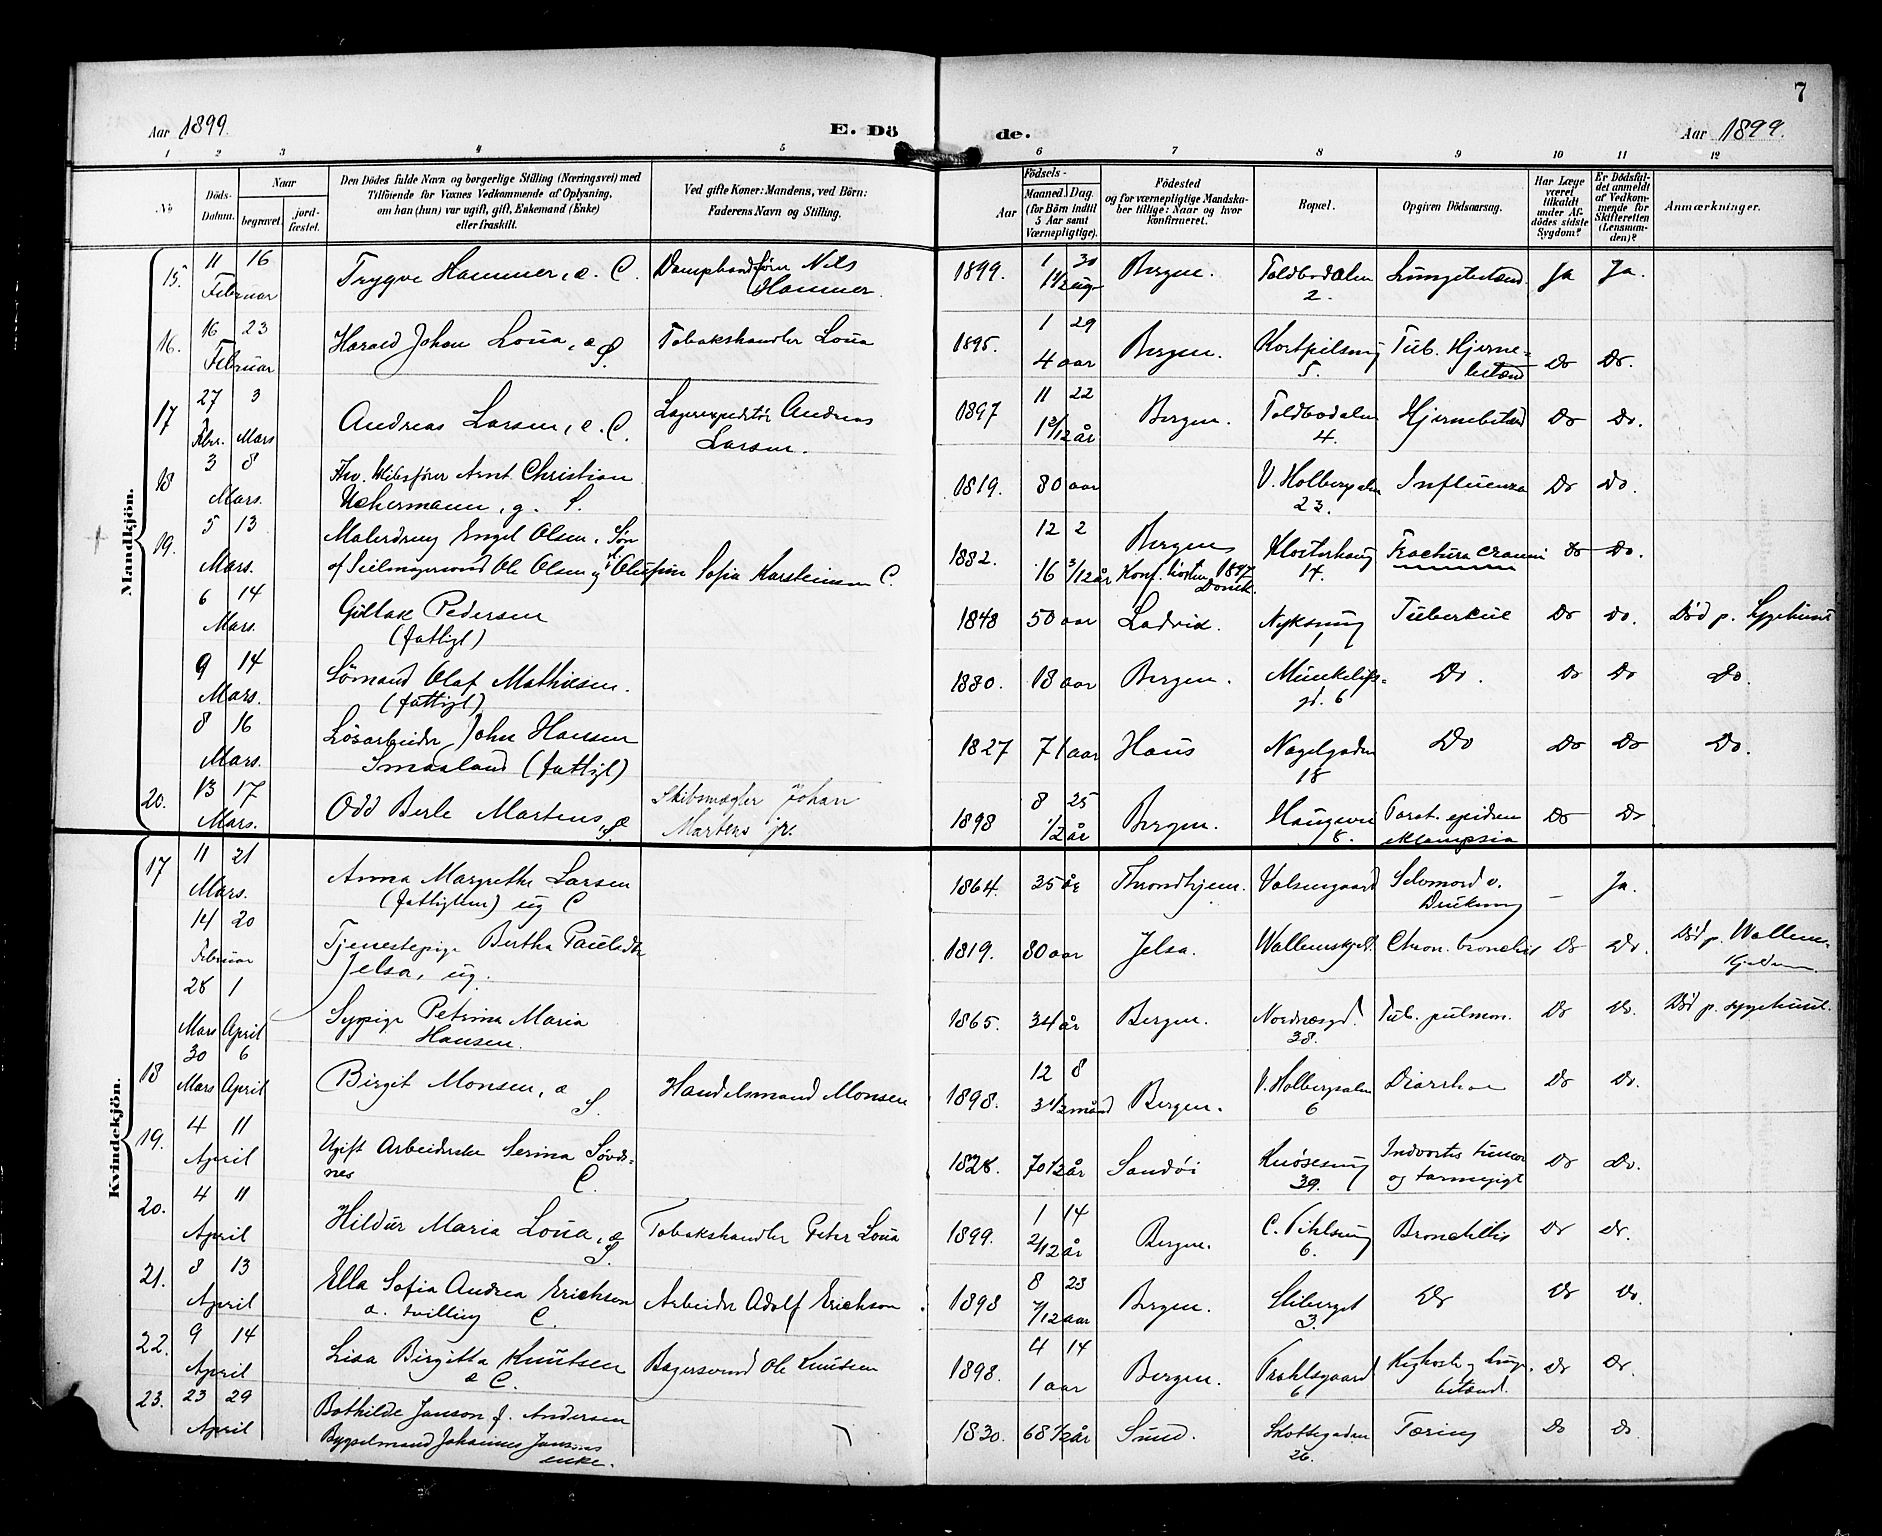 7
Aar 1899.
E. Dö de.
Aar 1899.
1 2 3 4 5 6 7 8 9 10 11 12
No
Döds-
Datum.
Naar
begravet.
jord-
fæstet.
Den Dödes fulde Navn og borgerlige Stilling (Næringsvei) med
Tilföiende for Voxnes Vedkommende af Oplysning,
om han (hun) var ugift, gift, Enkemand (Enke)
eller fraskilt.
Ved gifte Koner: Mandens, ved Börn:
Faderens Navn og Stilling.
Födsels-
Aar
Maaned. Dag.
(for Börn indtil
5 Aar samt
Værnepligtige).
Födested
og for værnepligtige Mandska-
ber tillige: Naar og hvor
konfirmeret.
Bopæl.
Opgiven Dödsaarsag.
Har Læge
været
tilkaldt
under Af-
dödes sidste
Sygdom?
Er Dödsfal-
det anmeldt
af Vedkom-
mende for
Skifteretten
(Lensman-
den)?
Anmærkninger.
Mandkjön.
15. 11 16 Februar Trygve Hammer, æ. C. Nils
Hammer. 1899. 1 30 Bergen. Toldbodalm
2. Lungebetænd. Ja Ja.
16. 16 23 Februar Harald Johan Loua, æ
S. Tobakshandler Loua 1895. 1 29
4 aar Bergen. 5. Tub. Hjerne-
betænd Do Do.
17 27 3 Febr. Mars Andreas Larsen, æ. C. Lagerexpeditör Andreas
Larsen. 1897 11 22
år Bergen. Toldbodalm
4. Hjernebetænd Do Do.
18 3 8 Mars. Fhv. Skibsförer Arnt Christian
Uchermann, g. S. 1819. 80 aar V. Holbergsalm
23. Influenza Do Do.
19. 5 13 Mars. Malerdreng Engel Olsen, Søn
af Seilmagersvend Ole Olsen og Sofia Karstensen C. 1882. 12 2
16 3/12 år Bergen
Konf. hosten 1897
Domk. Klosterhaug
14. Fractura cranii Do Do.
6 14 Mars. Gullak Pedersen
(fattigl) 1848 50 aar Ladvik. Nyksmug
1 Tuberkul Do Do. Død p. Sygehuset
9 14 Mars. Sömand Olaf Mathiesen.
(fattigl) 1880. 18 aar Bergen. Munkelifs-
gd. 6 Do. Do Do Do.
8 16 Mars. Lösarbeider John Hansen
Smaaland (fattigl) 1827 71 aar Haus Nagelgaden
18 Do Do Do Do.
20. 13 17 Mars. Odd Berle Martens, æ
S. Skibsmægler Johan
Martens jr. 1898 8 25
1/2 år Bergen. Haugevei
8. Parot. epidem
eklampsia Do Do
Kvindekjön.
17 11 21 Mars. Anna Margrethe Larsen
(fattiglem) ug C 1864. 35 år Throndhjem. Selvmord v.
Drukning – Ja.
14 20 Februar Tjenestepige Bertha Paulsdtr
Jelsa, ug. 1819. 80 aar Jelsa. Chron. bronchit Do Do. Død p. Wallem-
28 1 Mars April Sypige Petrina Maria
Hansen. 1865. 34 år Bergen. Nordnæsgd.
38. Tub. pulmon. Do Do. Død p. sygehuset.
18 30 6 Mars April Birgit Monsen, æ
S. Handelsmand Monsen 1898. 12 8
3 1/2 månd Bergen. V. Holbergsalm
6 Diarrhoe Do Do.
19. 4 11 April Ugift Arbeiderske Serina Sövds-
nes C. 1828. 70 1/2 år Sandöi Knösesmug
39. Indvortis tumor
og tarmegigt Do Do.
20. 4 11 April Hildur Maria Loua, æ
S. Tobakshandler Peter Loua 1899. 1 14
2/12 år Bergen. C. Pihlsmug
6. Bronchitis Do Do.
21. 8 13 April Ella Sofia Andrea Erichson
æ. tvilling C. Arbeider Adolf Erichson 1898 8 23
7/12 aar Bergen. Skiberget
3. Do Do Do.
22. 9 14 April Lisa Birgitta Knutsen
æ C. Bagersvend Ole Knutsen 1898. 4 14
1 aar Bergen. Prahlsgaard
6 Kighoste og Lunge-
betænd. Do Do.
23. 23 29 April Bothilde Janson f. Andersen
Bygselmand Johannes Jansons
enke. 1830. 68 1/2 år Sund. Skottegaden
26. Tæring Do Do